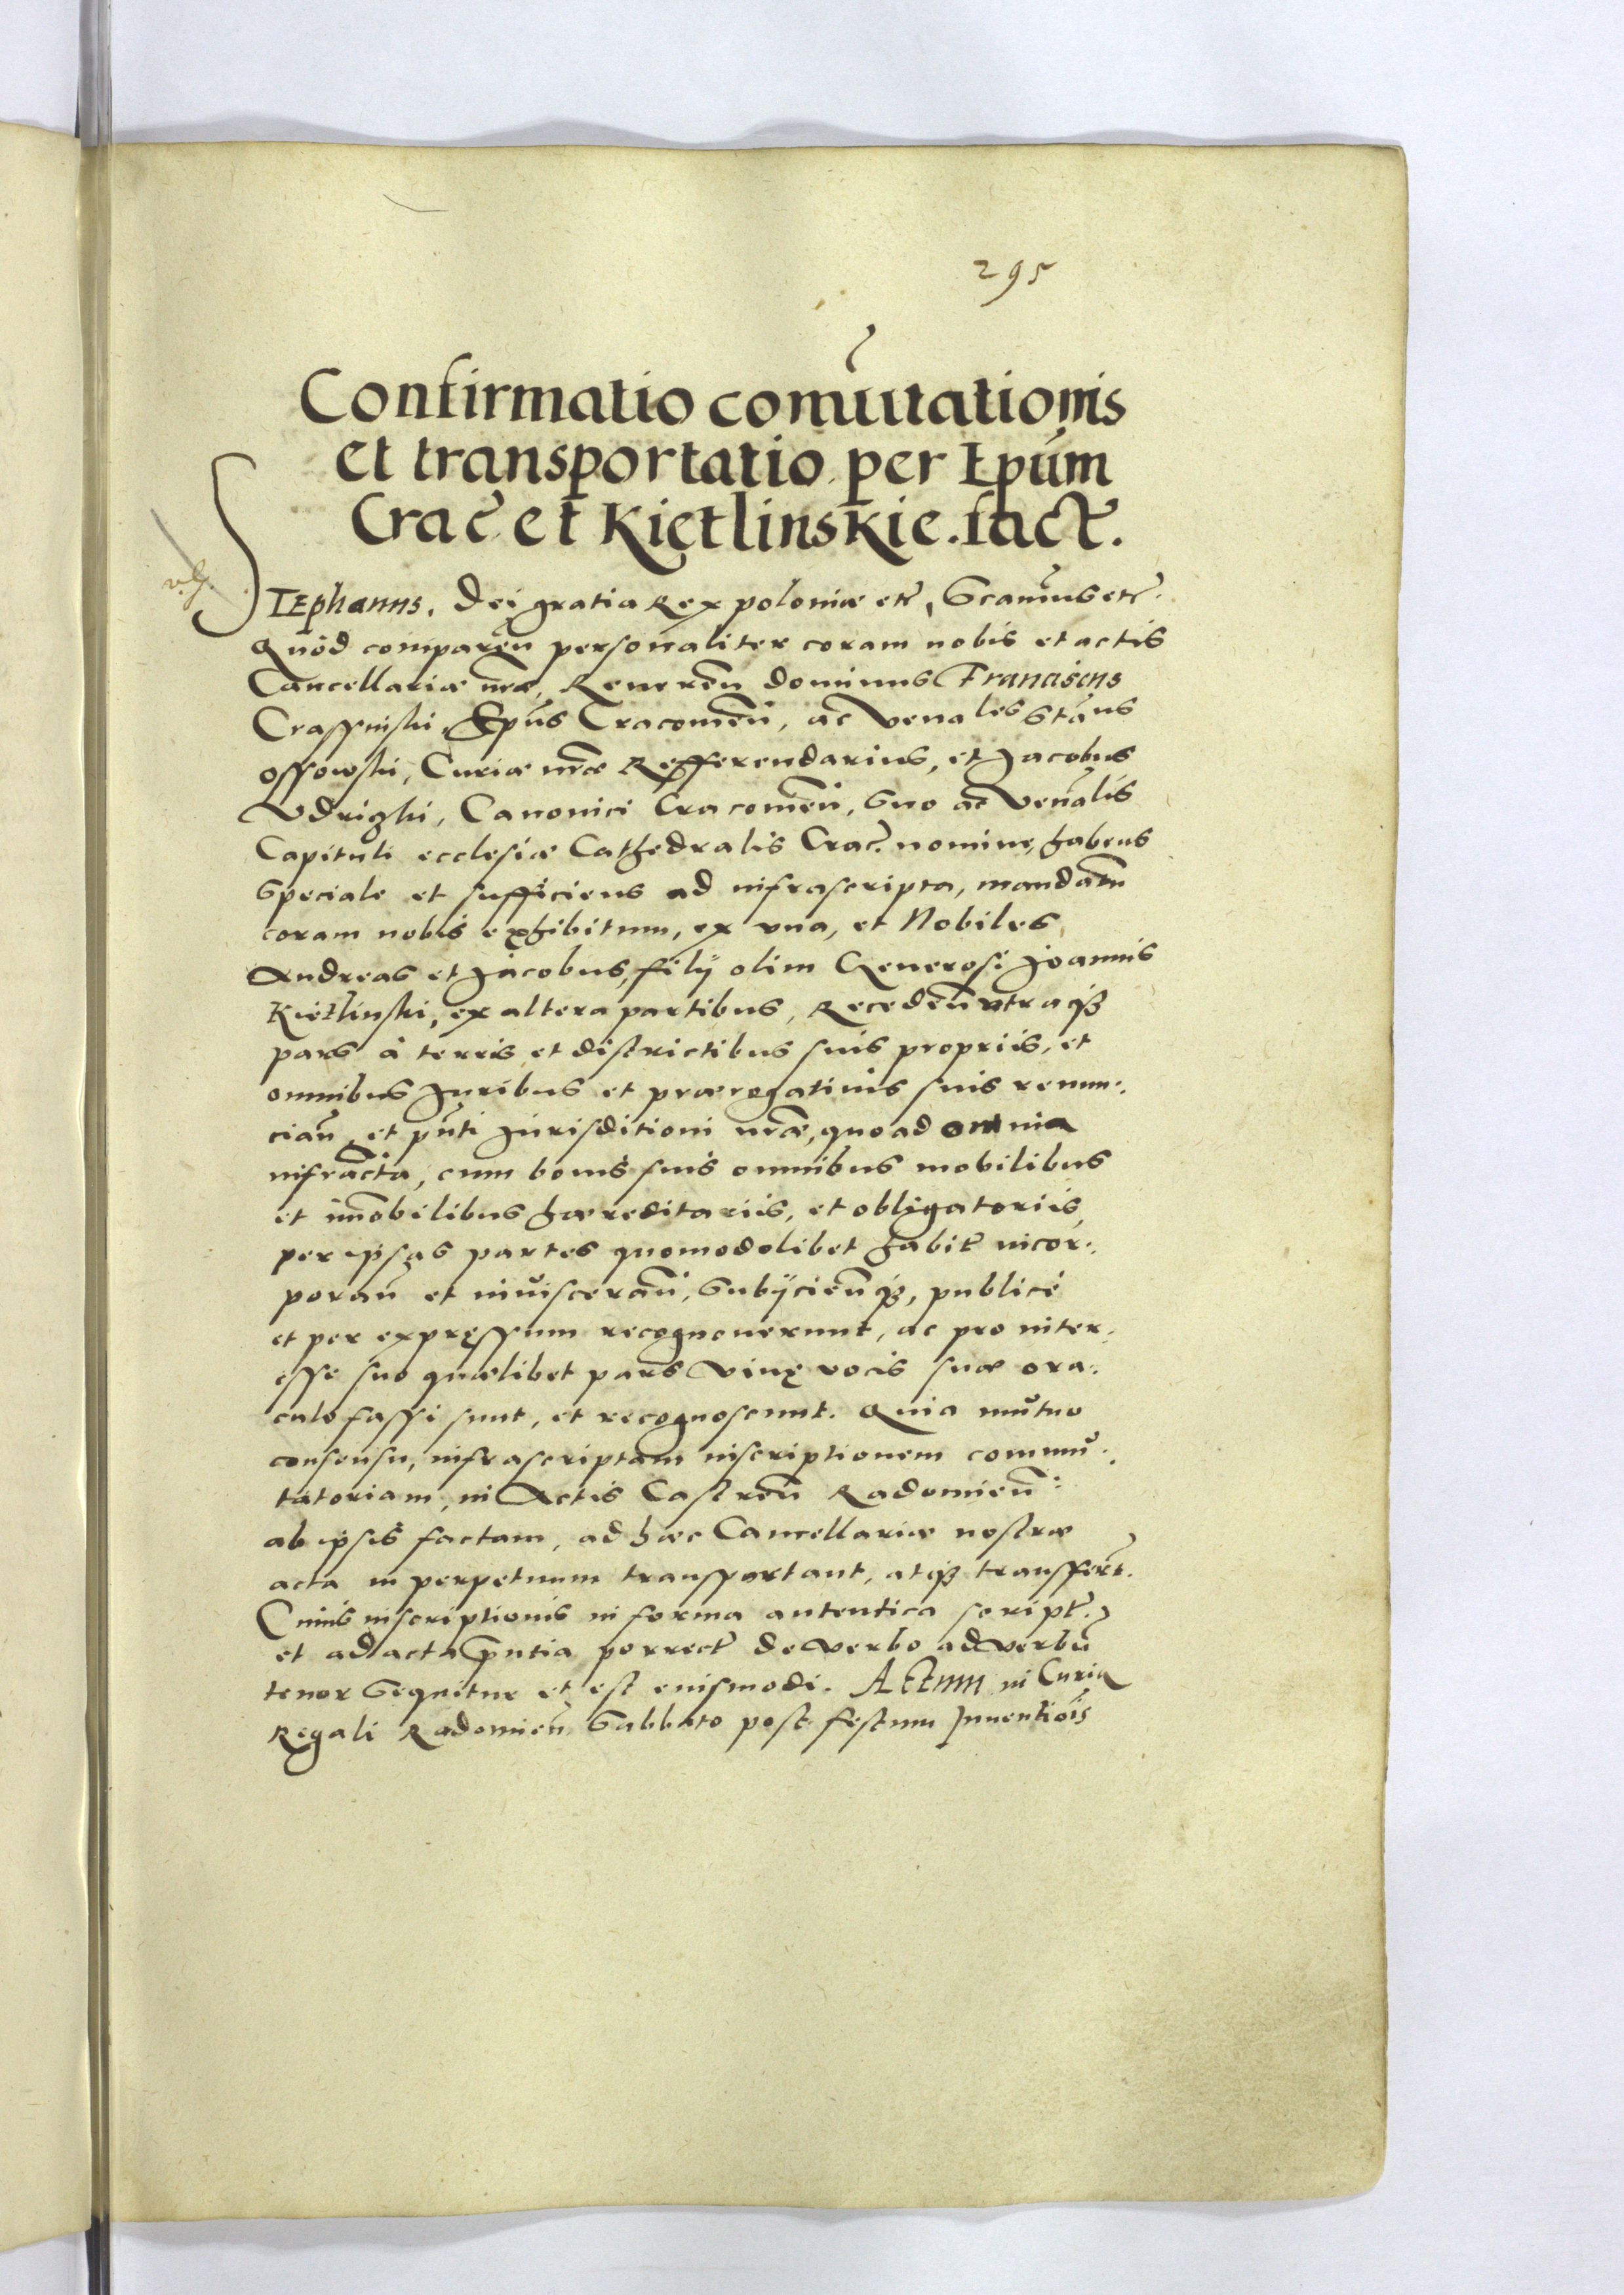 295
Confirmatio com̃utationis
et transportatio per Epũm
Crac̃ et Kietlinskie. fact̃.
STEphanus, Dei gratia Rex poloniæ etc̃, Scam̃us etc̃.
Quòd comparẽn personaliter coram nobis et actis
Cancellariæ nr̃æ, Reuerẽn dominus Franciscus
Crassinski, Ep̃us Cracouieñ, ac Venales Stãus
Ossowski, Curiæ nr̃æ Refferendarius, et Jacobus
Vdrizki, Canonici Cracouieñ, suo ac Veñalis
Capituli ecclesiæ Cathedralis Crac̃. nomine, habens
speciale et sufficiens ad infrascripta, mandatm̃
coram nobis exhibitum, ex vna, et Nobiles
Andreas et Jacobus, filij olim Generosi Joannis
Kietlinski, ex altera partibus, Recedeñ vtraqꝫ
pars à terris et districtibus suis propriis, et
omnibus Juribus et prærogatiuis suis renun-
ciañ, et pñti Jurisditioni nr̃æ, quo ad omnia
infracta, cum bonis suis omnibus mobilibus
et im̃obilibus hæreditariis, et obligatoriis,
per ipsas partes quomodolibet habit̃ incor-
porañ et inuiscerañ, subijcieñqꝫ, publicè
et per expręssum recognouerunt, ac pro inter-
esse suo quælibet pars viuę vocis suæ ora-
culo fassi sunt, et recognoscunt. Quia mutuo
consensu, infrascriptam inscriptionem commu-
tatoriam, in Actis Castreñ Radomieñ:
ab ipsis factam, ad hæc Cancellariæ nostræ
acta in perpetuum transportant, atqꝫ transffer̃t.
Cuius inscriptionis in forma autentica script̃.
et ad acta p̃ntia porrect̃ de verbo ad verbũ
tenor sequitur et est eiusmodi. Actum in Curia
Regali Radomieñ Sabbato post festum Inuentiõis